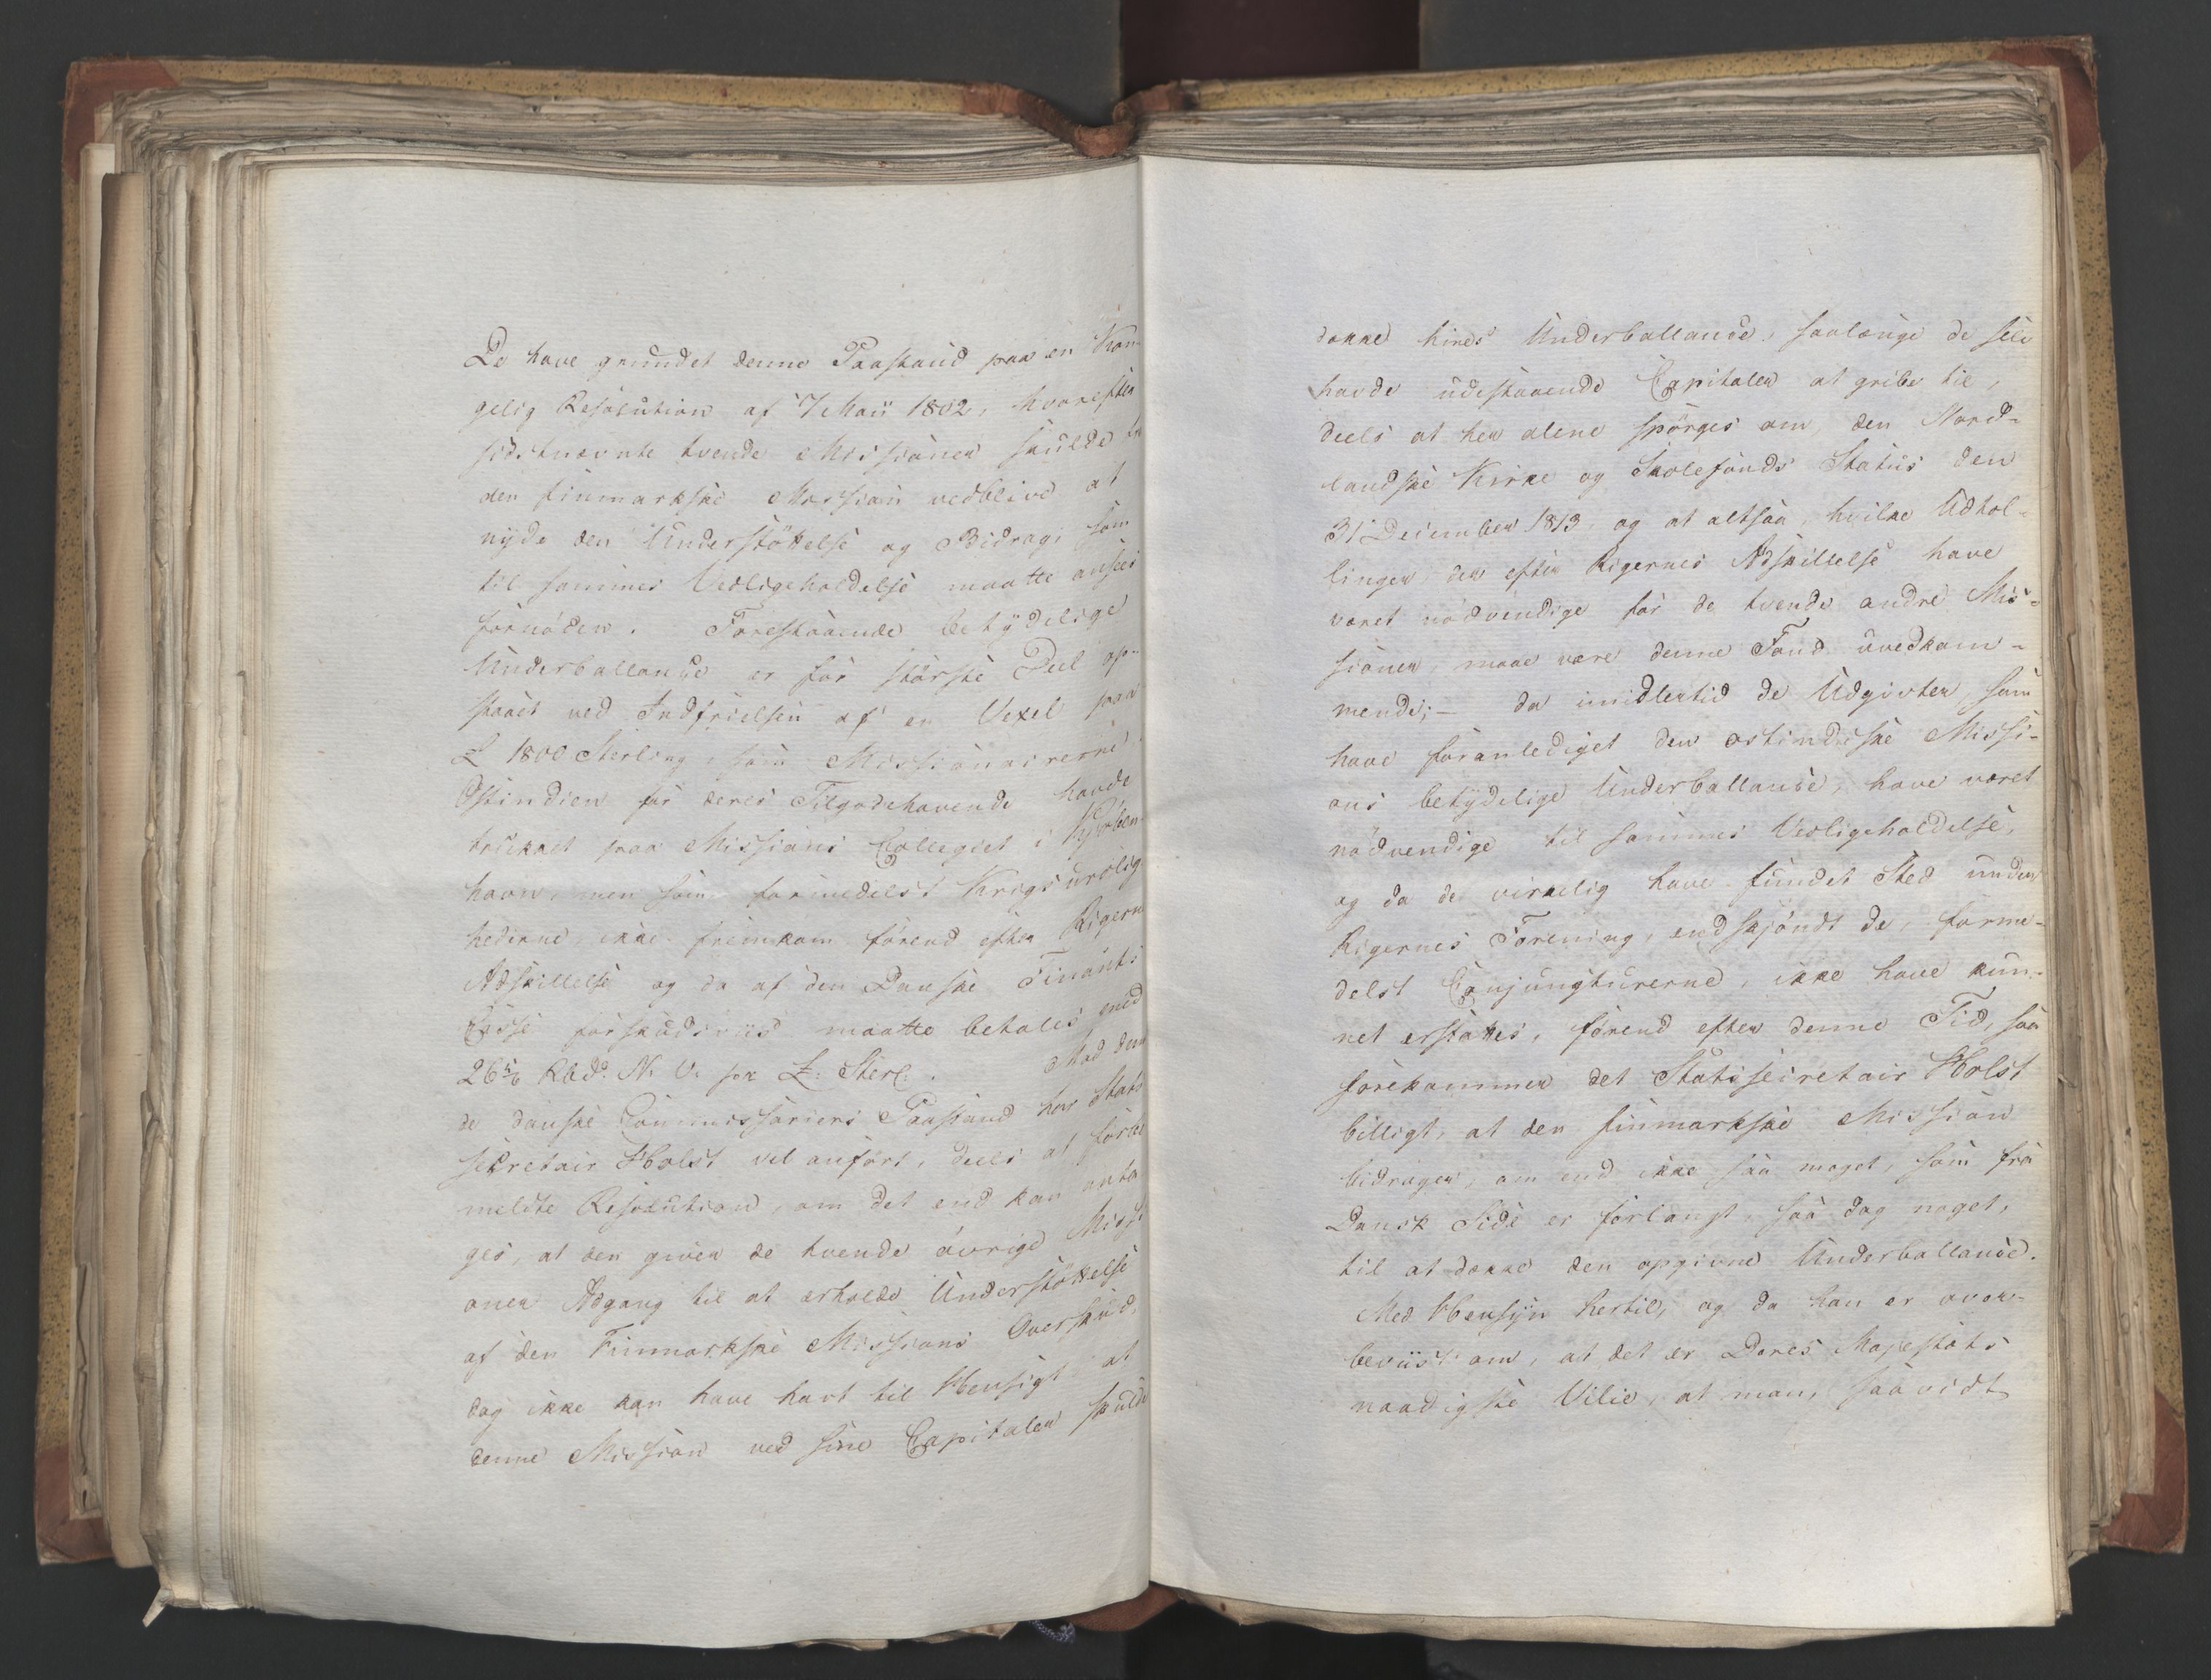 De have grundet denne Paastand paa en Kon-
gelig Resolution af 7 Maii 1802, hvorefter
sidstnævnte tvende Missioner skulde fra
den finmarkske Mission vedblive at
nyde den Understöttelse og Bidrag, som
til sammes Vedligeholdelse maatte ansees
fornöden. Forestaaende betydelige
Underballance er for störste Deel op-
staaet ved Indfrielsen af en Vexel paa
£ 1800 Sterling, som Missionairerne
Ostindien for deres Tilgodehavende havde
trukket paa Missions Collegiet i Kjöben-
havn, men som formedelst Krigsurolig
hederne, ikke fremkom förend efter Rigern
Adskillelse og da af den Danske Finants
Casse forskudsviis maatte betales med
26 5/6 Rbd. N. V. pr £: Sterl: . Mod den
de danske Commissariers Paastand har Stats
secretair Holst vel anfört, deels at forbe
meldte Resolution, om det end kan anta
ges, at den giver de tvende övrige Missi
oner Adgang til at erholde Understöttelse
af den Finmarkske Missions Overskud,
dog ikke kan have havt til Hensigt at
denne Mission ved sine Capitaler skulde
dække hines Underballance, saalænge de selv
havde udestaaende Capitaler at gribe til,
deels at her alene spörges om den Nord-
landske Kirke og Skolefonds Status den
31 December 1813, og at altsaa, hvilke Udtæl-
linger der efter Rigernes Adskillelse have
været nödvendige for de tvende andre Mis-
sioner, maae være denne Fond uvedkom-
mende; - da imidlertid de Udgivter, som
have foranlediget den ostindiske Missi-
ons betydelige Underballance, have været
nödvendige til sammes Vedligeholdelse,
og da de virkelig have fundet Sted under
Rigernes Forening, endskjöndt de, forme-
delst Conjuncturerne, ikke have kun-
net erstattes, förend efter denne Tid, saa
forekommer det Statssecretair Holst
billigt, at den finmarkske Mission
bidrager, om end ikke saa meget, som fra
Dansk Side er forlangt, saa dog noget,
til at dække den opgivne Underballance.
Med Hensyn hertil, og da han er over-
beviist om, at det er Deres Majestæts
naadigste Vilie, at man, saavidt